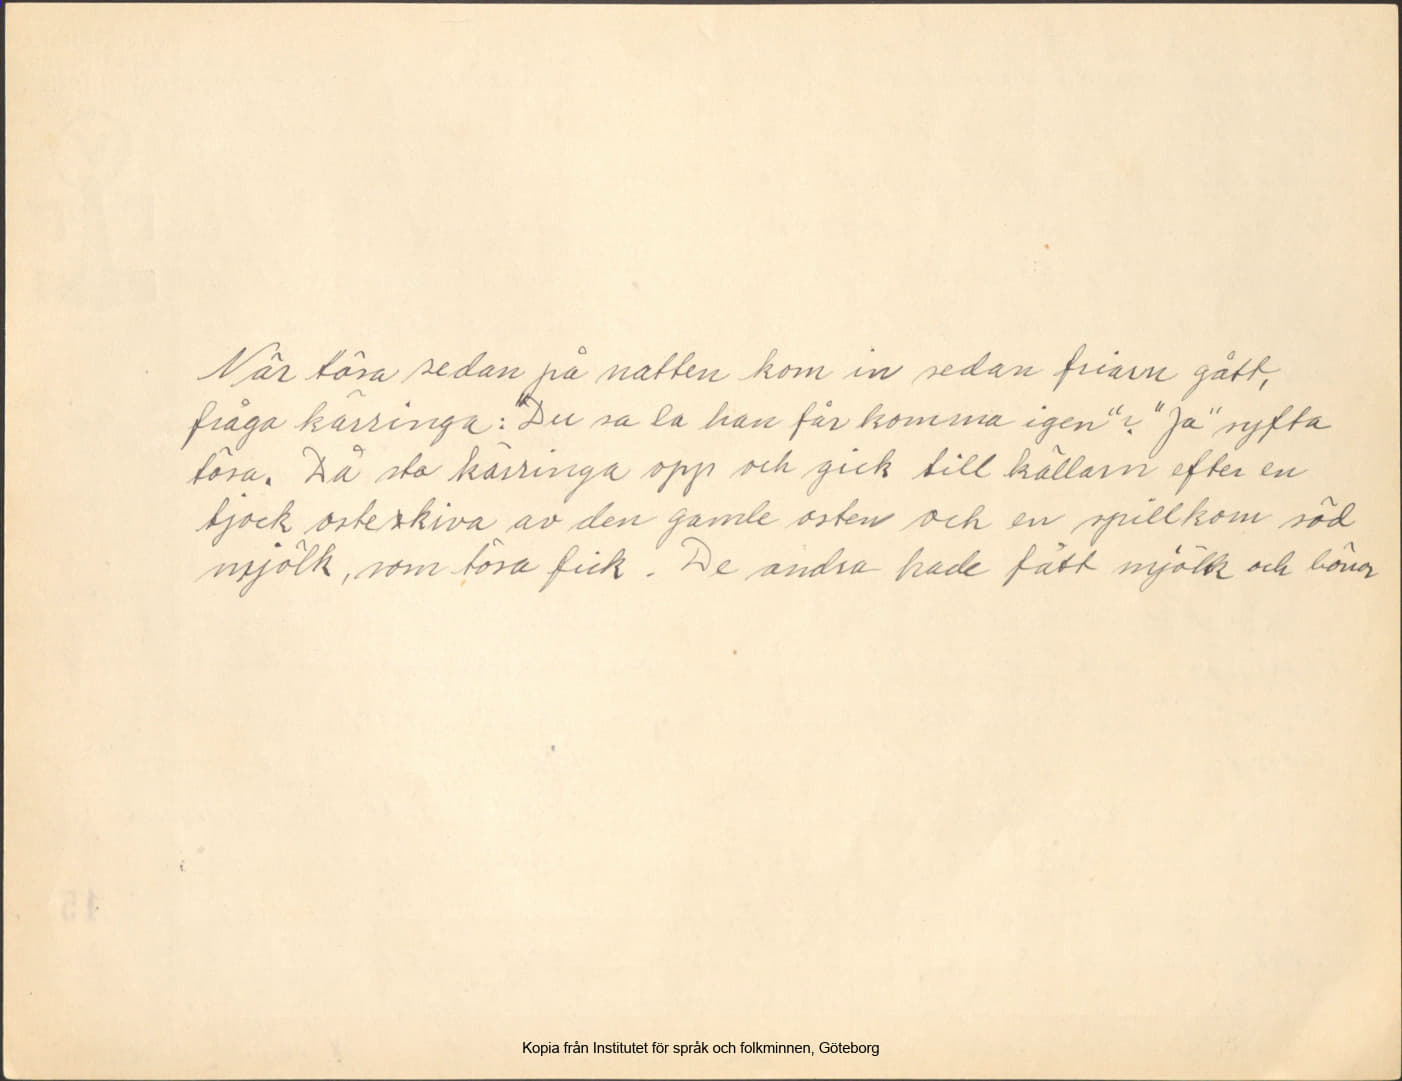 När tösa sedan på natten kom in sedan friarn gått,
fråga kärringa: "Du sa la han får komma igen"? "Ja" syfta
tösa. Då sto kärringa opp och gick till källarn efter en
tjock osteskiva av den gamle osten och en spillkom söd
mjölk, som tösa fick. De andra hade fått mjölk och bönor
Kopia från Institutet för språk och folkminnen, Göteborg